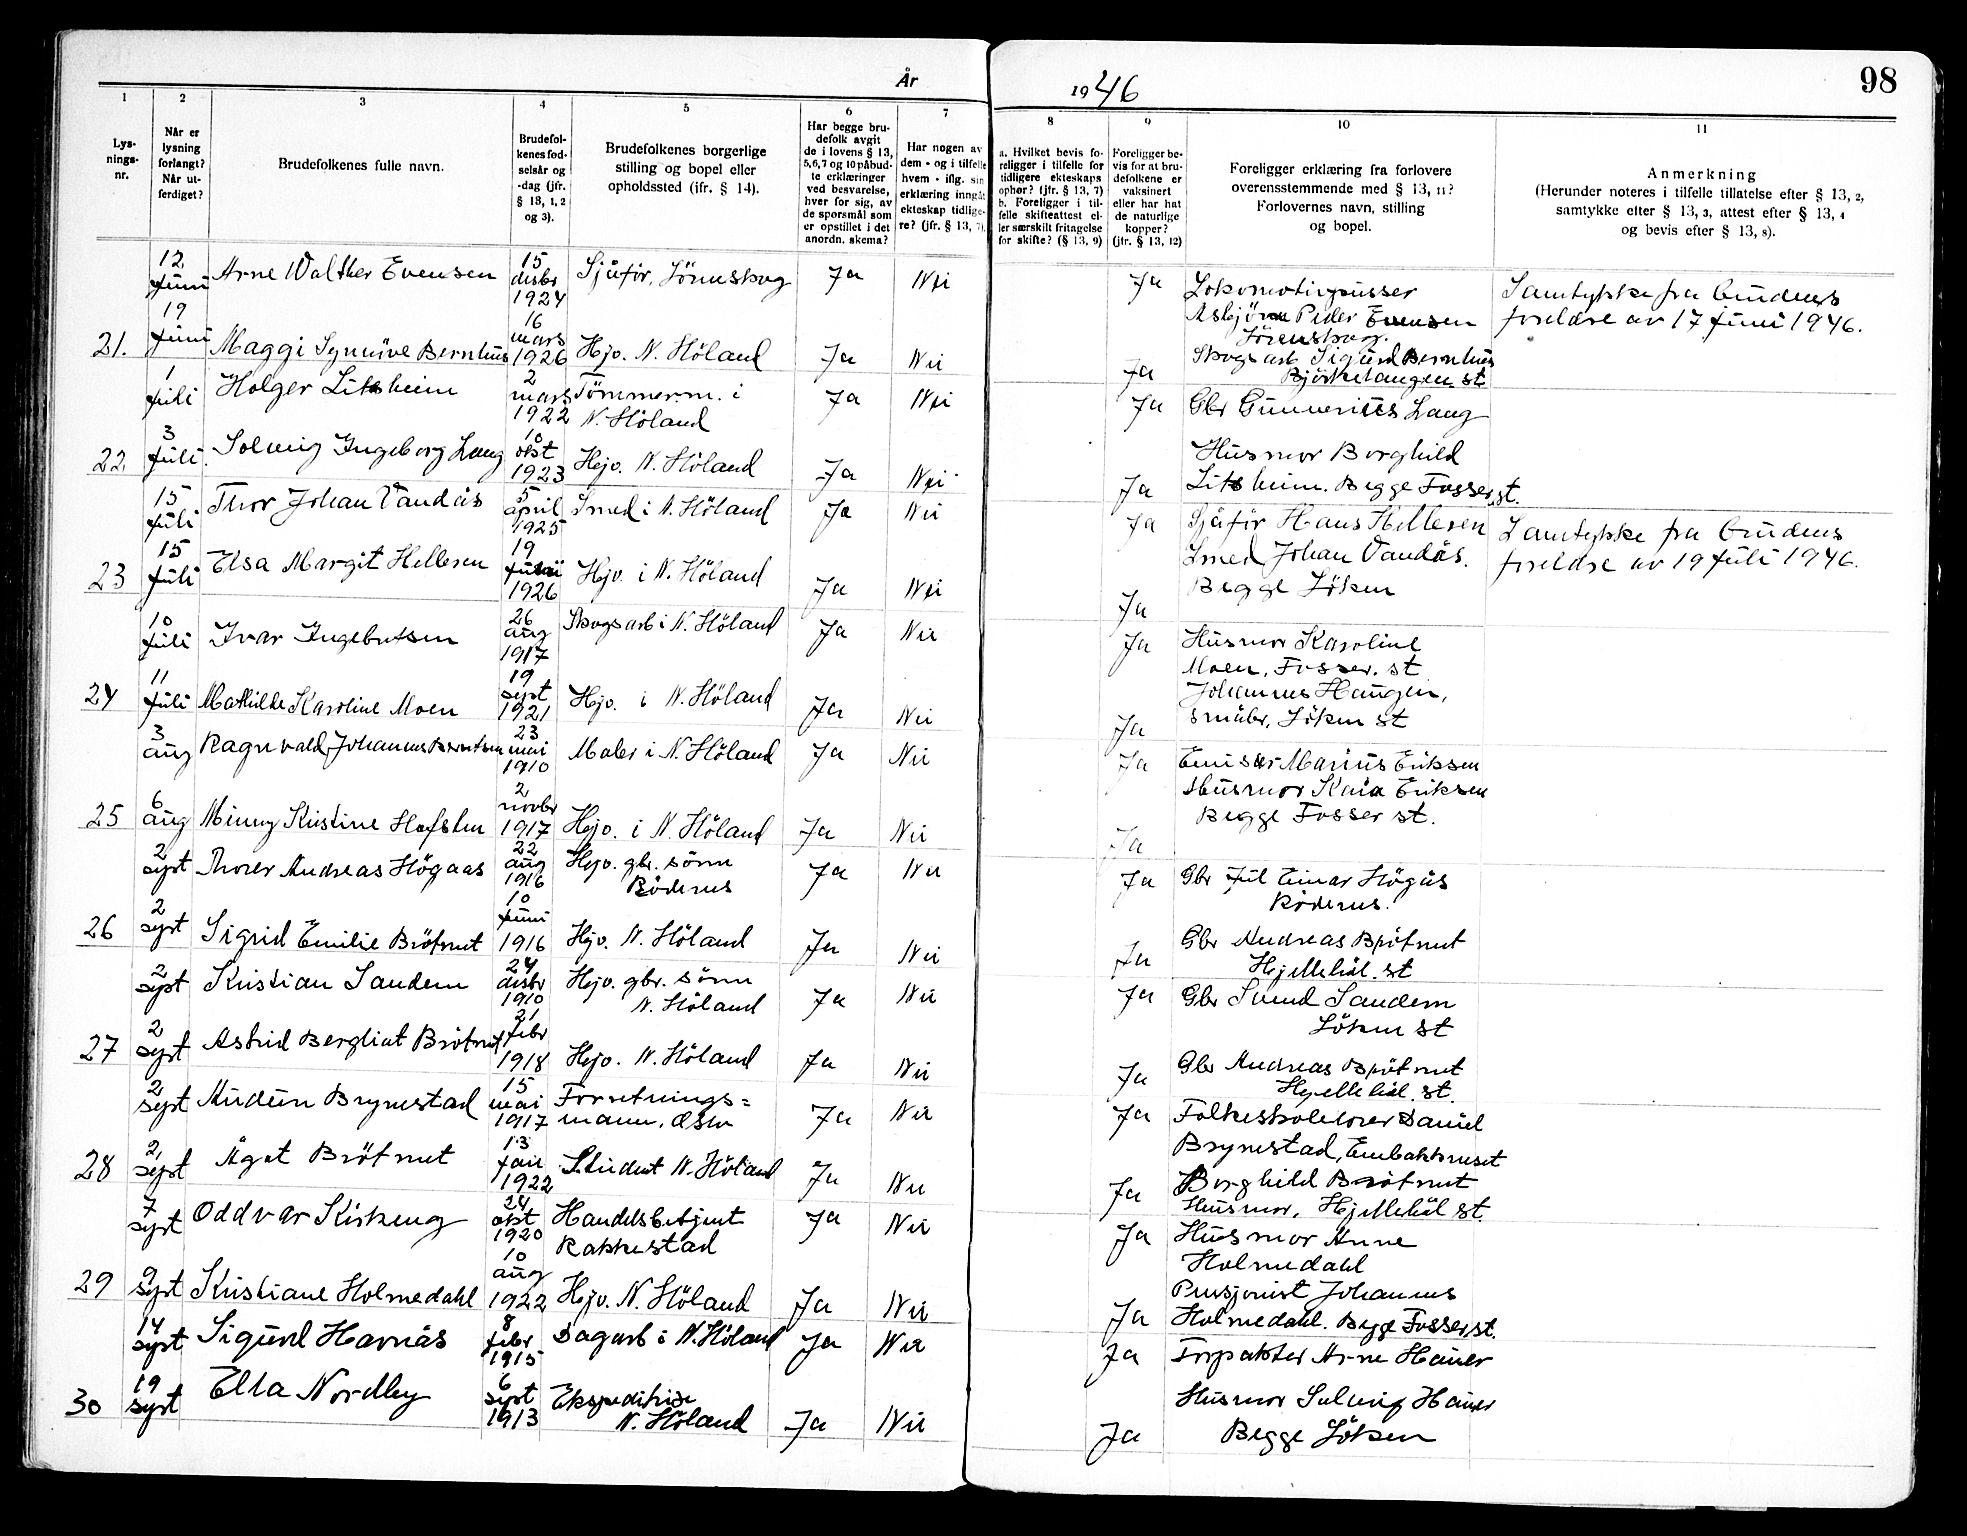 År 1946
98
1
2
3
4
5
6
7
8
9
10
11
Lys-
nings-
nr.
Når er
lysning
forlangt?
Når ut-
ferdiget?
Brudefolkenes fulle navn.
Brudefol-
kenes fød-
selsår og
-dag (jfr.
§ 13, 1, 2
og 3).
Brudefolkenes borgerlige
stilling og bopel eller
opholdssted (ifr. § 14).
Har begge bru-
defolk avgit
de i lovens § 13,
5,6,7 og 10 påbud-
te erklæringer
ved besvarelse,
hver for sig, av
de spørsmål som
er opstillet i det
anordn. skema?
Har nogen av
dem - og i tilfelle
hvem - iflg. sin
erklæring inngåt
ekteskap tidlige-
re? (jfr. § 13, 7).
a. Hvilket bevis fo-
religger i tilfelle for
tidligere ekteskaps
ophør? (jfr. § 13, 7)
b. Foreligger i til-
felle skifteattest el-
ler særskilt fritagelse
for skifte? (§ 13, 9)
Foreligger be-
vis for at bru-
defolkene er
vaksinert
eller har hat
de naturlige
kopper?
(jfr. § 13, 12)
Foreligger erklæring fra forlovere
overensstemmende med § 13, 11?
Forlovernes navn, stilling
og bopel.
Anmerkning
(Herunder noteres i tilfelle tillatelse efter § 13, 2,
samtykke efter § 13, 3, attest efter § 13, 4
og bevis efter § 13, 8).
21.
12
juni
19
juni
Arne Walther Evensen
15
desbr
1924
Sjåfør, Lörenskog
Ja
Nei
Ja
Lokomotivpusser
Asbjörn Peder Evensen
Lörenskog.
Samtykke fra brudens
foreldre av 17 juni 1946.
Maggi Synnöve Bernhus
16
mars
1926
Hjv. N. Höland
Ja
Nei
Ja
Skogsarb Sigurd Bernhus
Björkelangen st
22.
1
juli
3
juli
Holger Litsheim
2
mars
1922
Tömmerm. i
N. Höland
Ja
Nei
Ja
Gbr Gunnerius Lang
Solveig Ingeborg Lang
10
okt
1923
Hjv. N. Höland
Ja
Nei
Ja
Husmor Borghild
Litsheim. Begge Fosser st.
23
15
juli
15
juli
Thor Johan Vandås
5
april
1925
Smed i N. Höland
Ja
Nei
Ja
Sjåför Hans Hellesen
Smed Johan Vandås.
Begge Löken
Samtykke fra brudens
foreldre av 19 juli 1946.
Elsa Margit Hellesen
19
juni
1926
Hjv. i N. Höland
Ja
Nei
Ja
24
10
juli
11
juli
Ivar Ingebretsen
26
aug
1917
Skogsarb i N. Höland
Ja
Nei
Ja
Husmor Karoline
Moen, Fosser. st
Mathilde Karoline Moen
19
sept
1921
Hjv. i N. Höland
Ja
Nei
Ja
Johannes Haugen,
småbr, Löken st
25
3
aug
6
aug
Ragnvald Johannes Berntsen
23
mai
1910
Maler i N. Höland
Ja
Nei
Ja
Marius Eriksen
Husmor Kaia Eriksen
Begge Fosser st.
Minny Kristine Hofslen
2
novbr
1917
Hjv. i N. Höland
Ja
Nei
Ja
26
2
sept
2
sept
Thorer Andreas Högaas
22
aug
1916
Hjv. gbr. sönn
Rödenes
Ja
Nei
Ja
Gbr Jul Einar Högås
Rödenes.
Sigrid Emilie Bråtnet
10
juni
1916
Hjv. N. Höland
Ja
Nei
Ja
Gbr Andreas Bråtnet
Hjellebøl. st
27
2
sept
2
sept
Kristian Sandem
24
desbr
1910
Hjv. gbr. sönn
N. Höland
Ja
Nei
Ja
Gbr Svend Sandem
Löken st
Astrid Bergliot Bråtnet
21
febr
1918
Hjv. N. Höland
Ja
Nei
Ja
Gbr Andreas Bråtnet
Hjellebøl. st.
28
2
sept
2
sept
Audun Brynestad
15
mai
1917
Forretnings=
mann, Oslo
Ja
Nei
Ja
Folkeskolelærer Daniel
Brynestad, Enebakkneset
Ågot Bråtnet
13
jan
1922
Student N. Höland
Ja
Nei
Ja
Borghild Bråtnet
Husmor, Hjellebøl st.
29
7
sept
9
sept
Oddvar Kirkeng
24
okt
1920
Handelsbetjent
Rakkestad
Ja
Nei
Ja
Husmor Anne
Holmedahl
Kristiane Holmedahl
10
aug
1922
Hjv. N. Höland
Ja
Nei
Ja
Pensjonist Johannes
Holmedahl. Begge Fosser st.
30
14
sept
19
sept
Sigurd Havnås
8
febr
1915
Dagarb i N. Höland
Ja
Nei
Ja
Forpakter Arne Hauer
Ella Nordby
6
sept
1913
Ekspeditrise
N. Höland
Ja
Nei
Ja
Husmor Solveig Hauer
Begge Löken